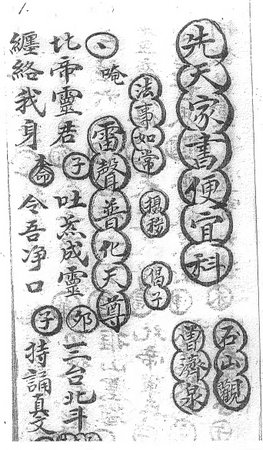 1.
先天家書便宜科
石山觀
法事如常 偈子
雷聲普化天尊
唵
比帝靈君 子 吐炁成靈 三台北斗
纏絡我身 令吾净口 子 持誦真文